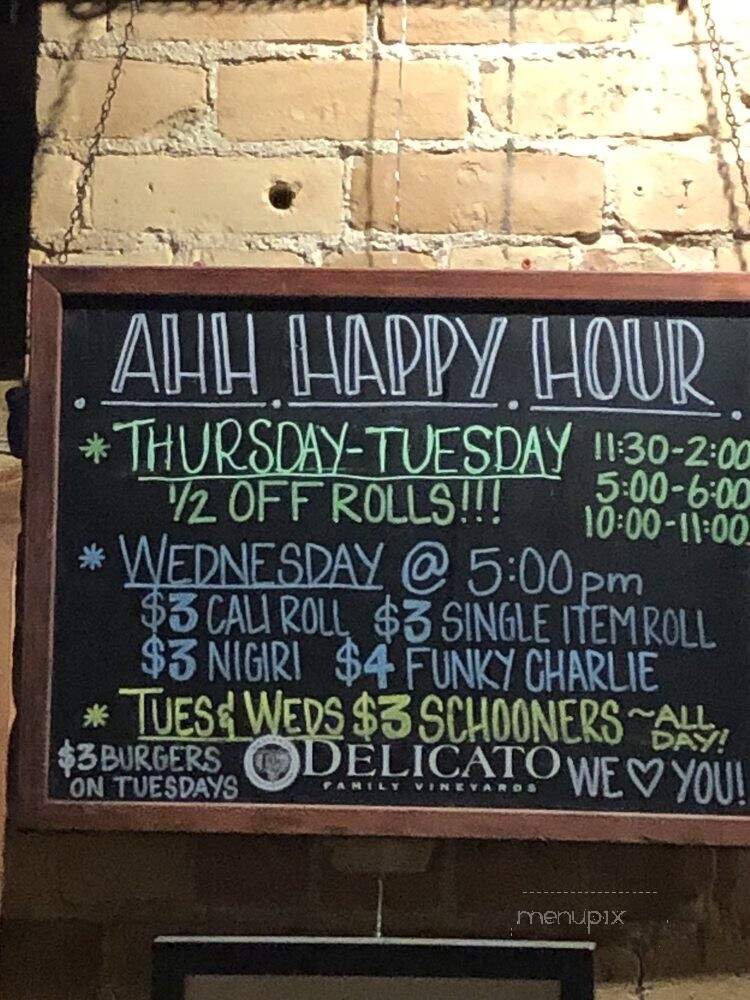 AHH HAPPY HOUR
* THURSDAY-TUESDAY 11:30-2:00
1/2 OFF ROLLS!!! 5:00-6:00
10:00-11:00
* WEDNESDAY @ 5:00pm
$3 CALI ROLL $3 SINGLE ITEM ROLL
$3 NIGIRI $4 FUNKY CHARLIE
* TUES & WEDS $3 SCHOONERS ~ALL DAY!
$3 BURGERS ON TUESDAYS
DELICATO
FAMILY VINEYARDS
WE ♡ YOU!
menupix